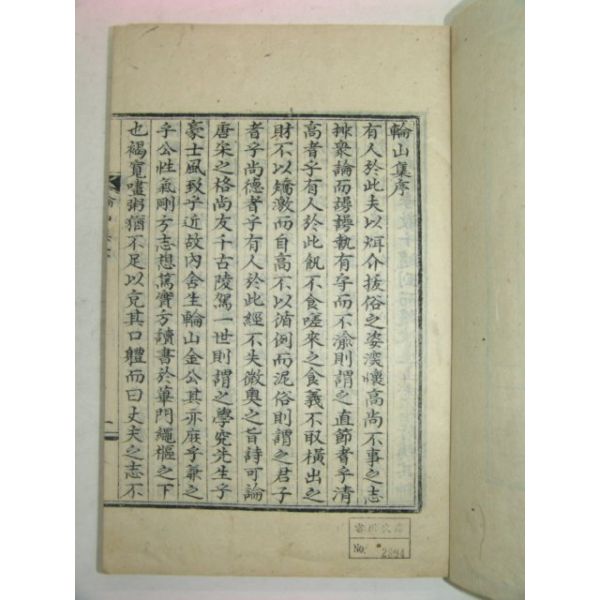 輪山集序
有人於此夫以炯介拔俗之姿漠懷高尚不事之志
排衆論而諤諤執有守而不渝則謂之直節者乎清
高者乎有人於此飢不食嗟來之食義不取橫出之
財不以矯激而自高不以循例而泥俗則謂之君子
者乎尚德者乎有人於此經不失微奧之旨詩可論
唐宋之格尚友千古陵駕一世則謂之學究先生乎
豪士風致乎近故內舍生輪山金公其亦庶乎兼之
乎公性氣剛方志想篤實方讀書於蓽門繩樞之下
也褐寬嘑粥猶不足以充其口軆而曰丈夫之志不
一
No. 2894